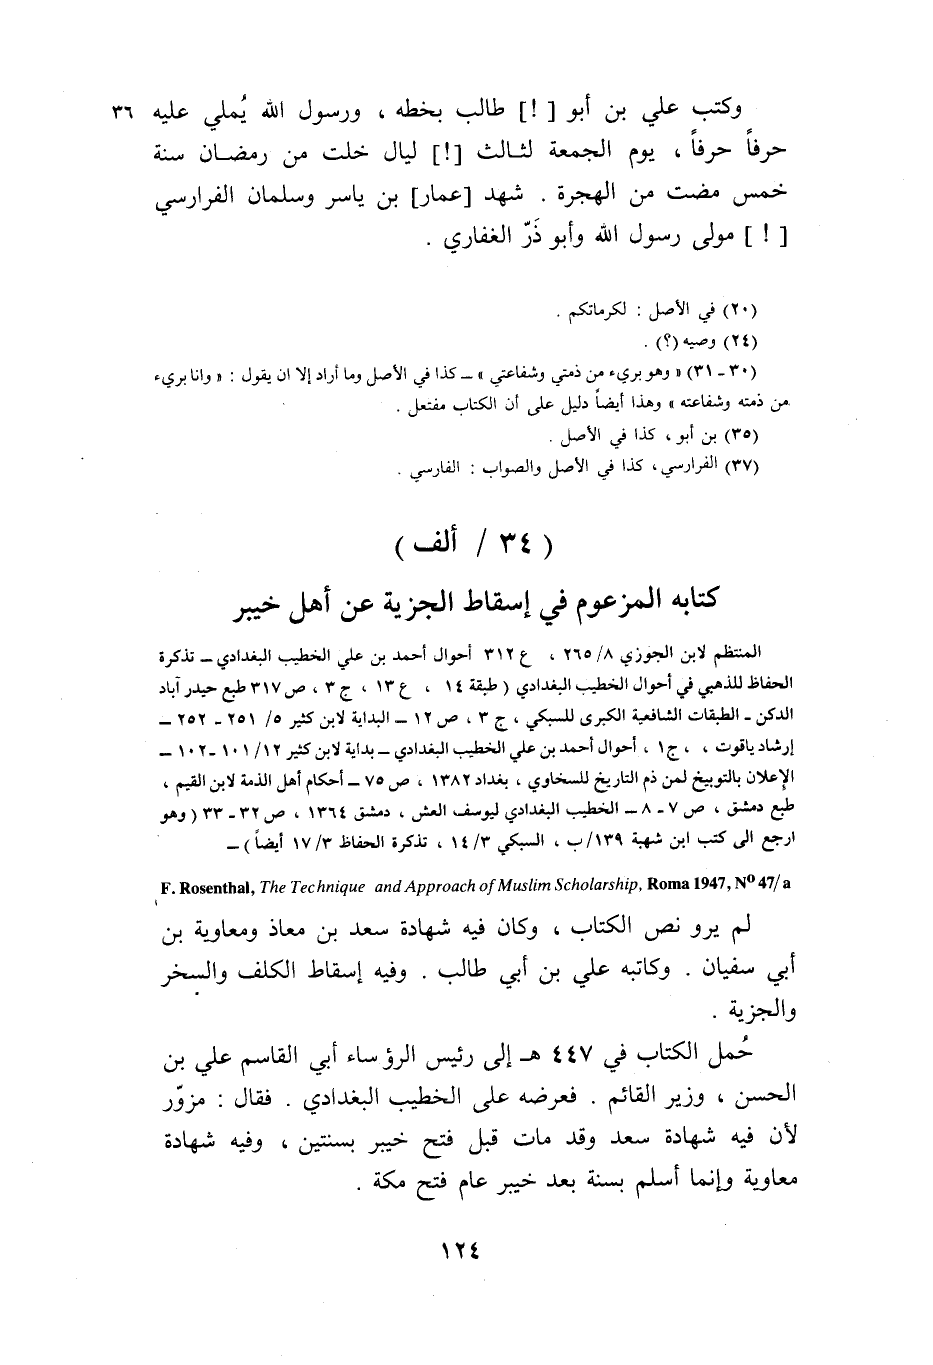 وكتب علي بن أبو [ ! ] طالب بخطه ، ورسول الله يُملي عليه ٣٦
حرفاً حرفاً ، يوم الجمعة لثـالث [!] ليال خلت من رمضـان سنة
خمس مضت من الهجرة . شهد [عمار] بن ياسر وسلمان الفرارسي
[ ! ] مولى رسول الله وأبو ذَرّ الغفاري .
(٢٠) في الأصل : لكرماتكم .
(٢٤) وصيه (؟) .
(٣٠ - ٣١) « وهو بريء من ذمتي وشفاعتي » ـ كذا في الأصل وما أراد إلا ان يقول : « وانا بريء
من ذمته وشفاعته » وهذا أيضاً دليل على أن الكتاب مفتعل .
(٣٥) بن أبو ، كذا في الأصل .
(٣٧) الفرارسي، كذا في الأصل والصواب : الفارسي .
( ٣٤ / ألف )
كتابه المزعوم في إسقاط الجزية عن أهل خيبر
المنتظم لابن الجوزي ٨/ ٢٦٥ ، ع ٣١٢ أحوال أحمد بن علي الخطيب البغدادي ـ تذكرة
الحفاظ للذهبي في أحوال الخطيب البغدادي ( طبقة ١٤ ، ع ١٣ ، ج ٣ ، ص ٣١٧ طبع حيدر آباد
الدكن ـ الطبقات الشافعية الكبرى للسبكي ، ج ٣ ، ص ١٢ ـ البداية لابن كثير ٥/ ٢٥١ - ٢٥٢ ـ
إرشاد ياقوت ، ، ج ١ ، أحوال أحمد بن علي الخطيب البغدادي ـ بداية لابن كثير ١٢/ ١٠١ -١٠٢ ـ
الإعلان بالتوبيخ لمن ذم التاريخ للسخاوي ، بغداد ١٣٨٢ ، ص ٧٥ ـ أحكام أهل الذمة لابن القيم ،
طبع دمشق ، ص ٧ - ٨ ـ الخطيب البغدادي ليوسف العش ، دمشق ١٣٦٤ ، ص ٣٢ - ٣٣ ( وهو
ارجع الى كتب ابن شهبة ١٣٩/ب ، السبكي ٣/ ١٤ ، تذكرة الحفاظ ٣/ ١٧ أيضاً ) ـ
F. Rosenthal, The Technique and Approach of Muslim Scholarship, Roma 1947, Nº 47/a
لم يرو نص الكتاب ، وكان فيه شهادة سعد بن معاذ ومعاوية بن
أبي سفيان . وكاتبه علي بن أبي طالب . وفيه إسقاط الكلف والسخر
والجزية .
حُمل الكتاب في ٤٤٧ هـ إلى رئيس الرؤساء أبي القاسم علي بن
الحسن ، وزير القائم . فعرضه على الخطيب البغدادي . فقال : مزوّر
لأن فيه شهادة سعد وقد مات قبل فتح خيبر بسنتين ، وفيه شهادة
معاوية وإنما أسلم بسنة بعد خيبر عام فتح مكة .
١٢٤